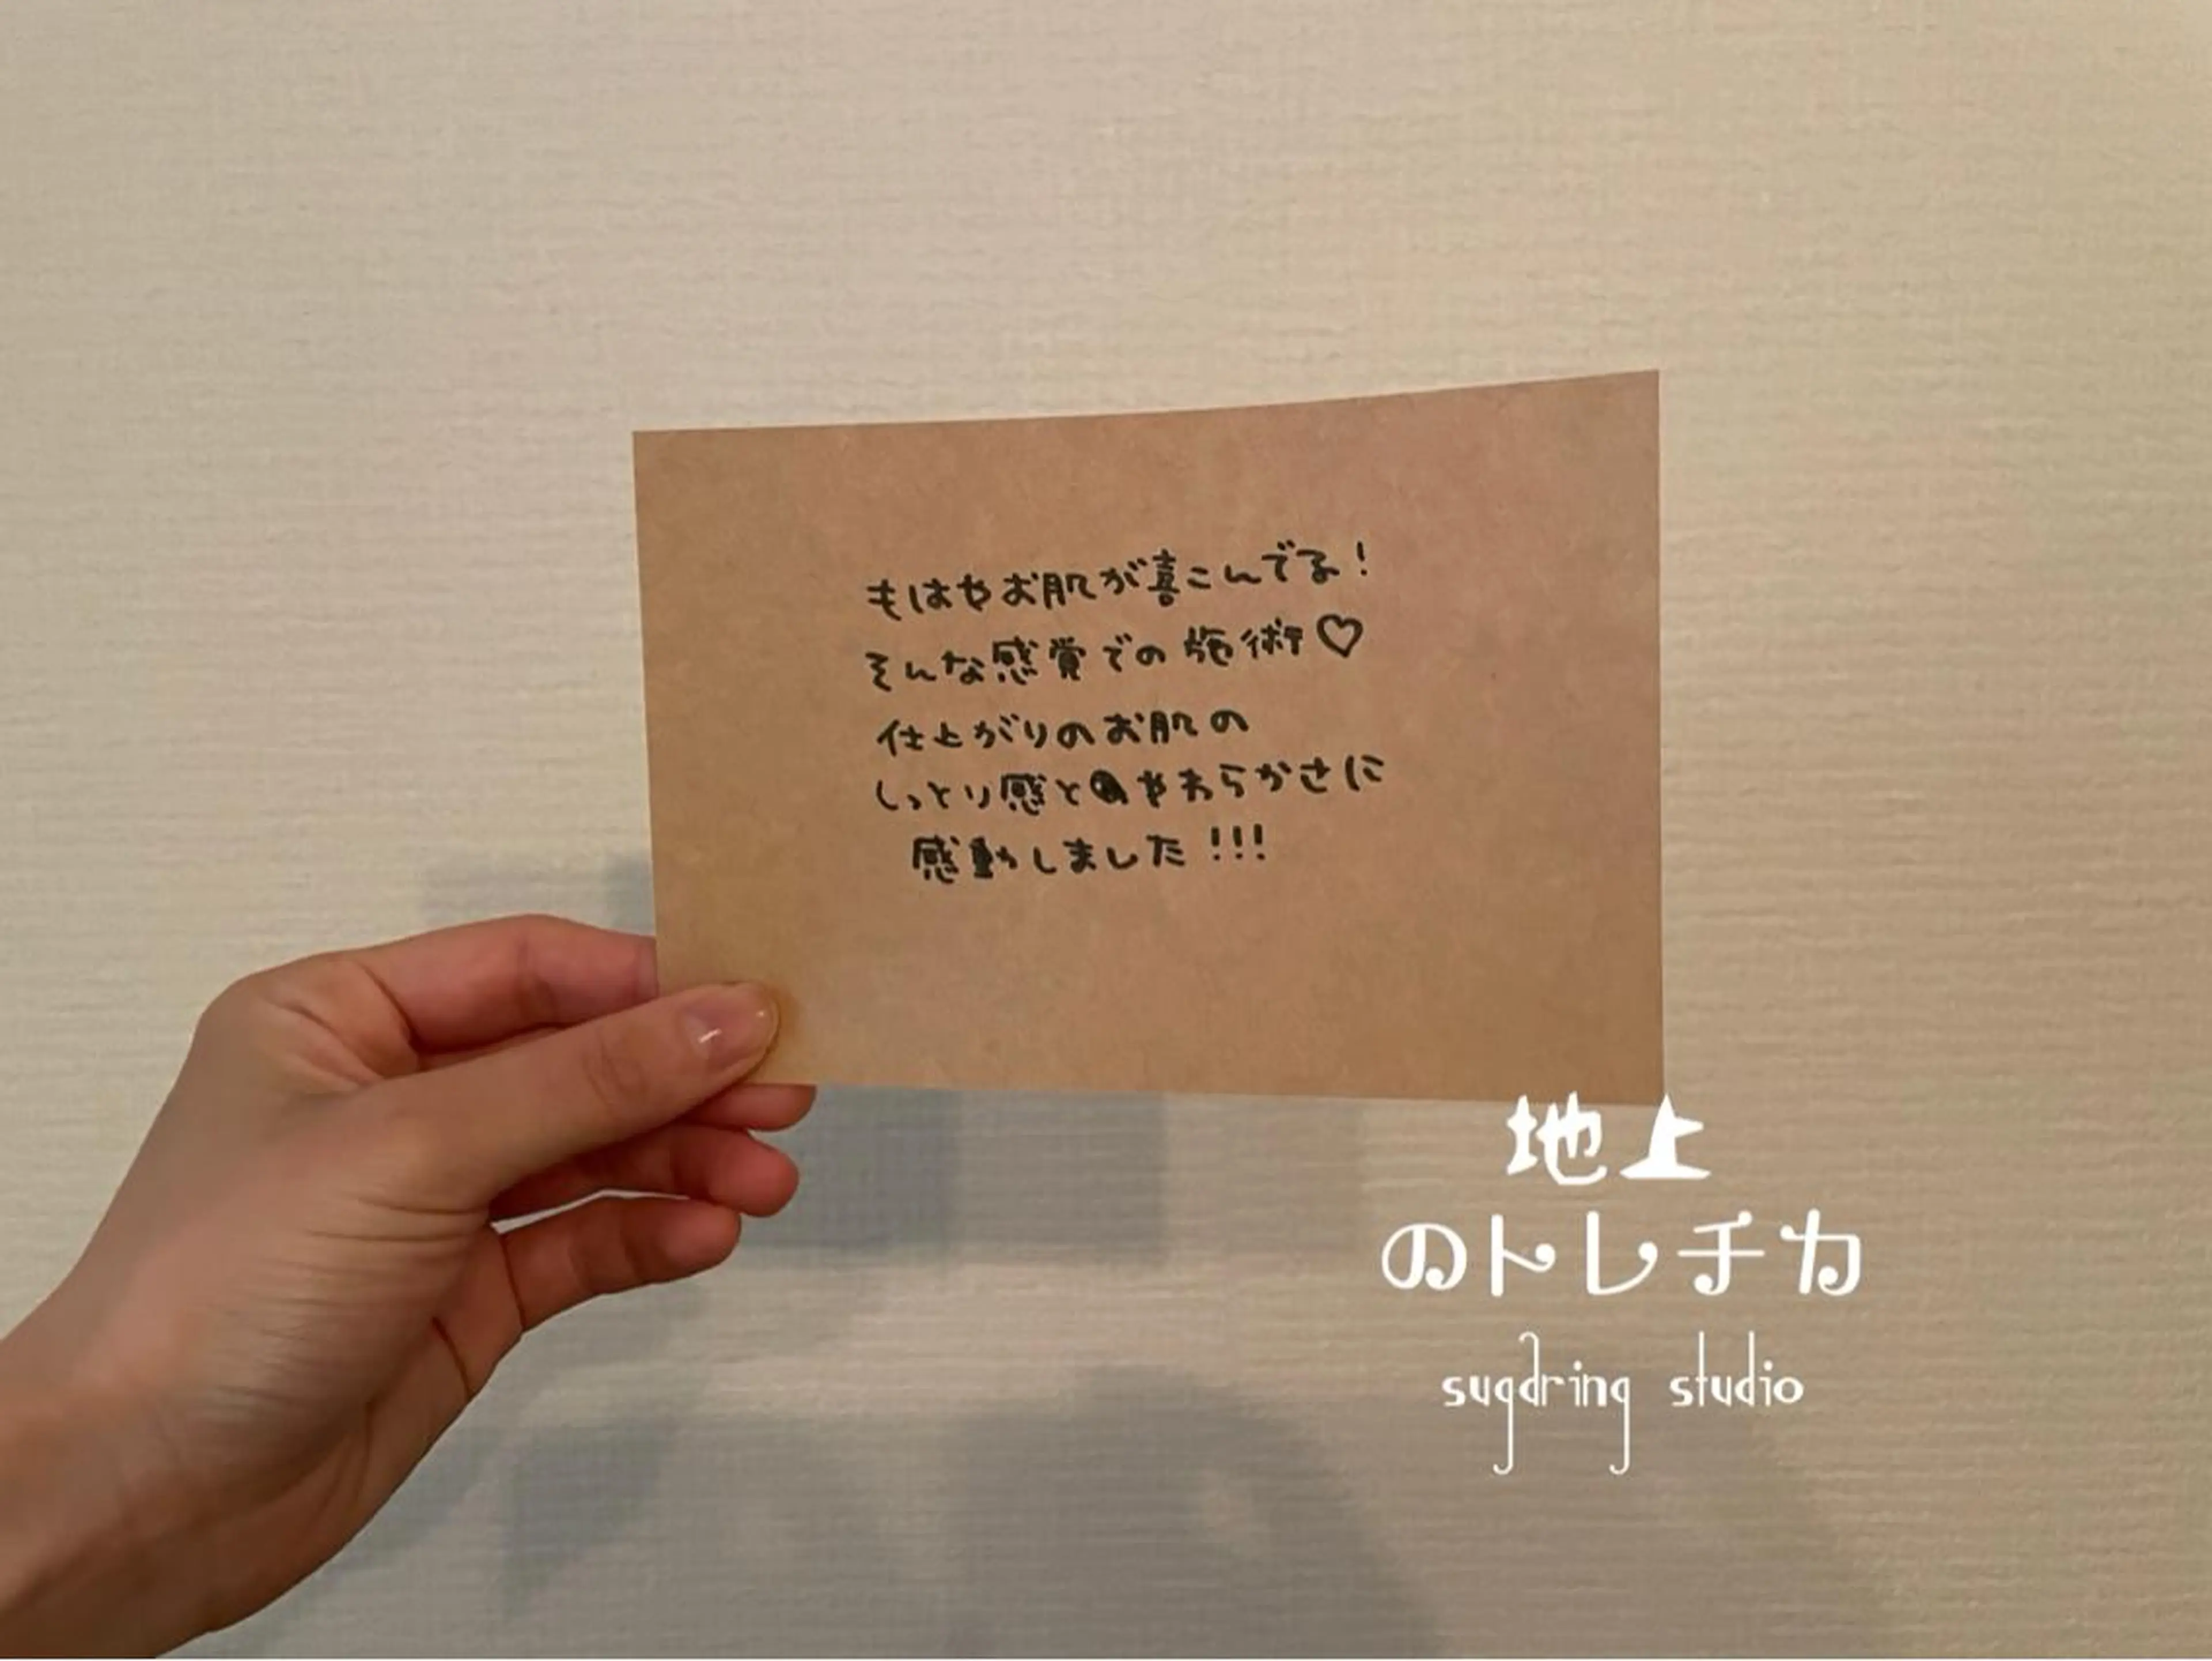 もはやお肌が喜こんでる！
そんな感覚での施術♡
仕上がりのお肌の
しっとり感とやわらかさに
感動しました!!!
地上
のトレチカ
sugdring studio